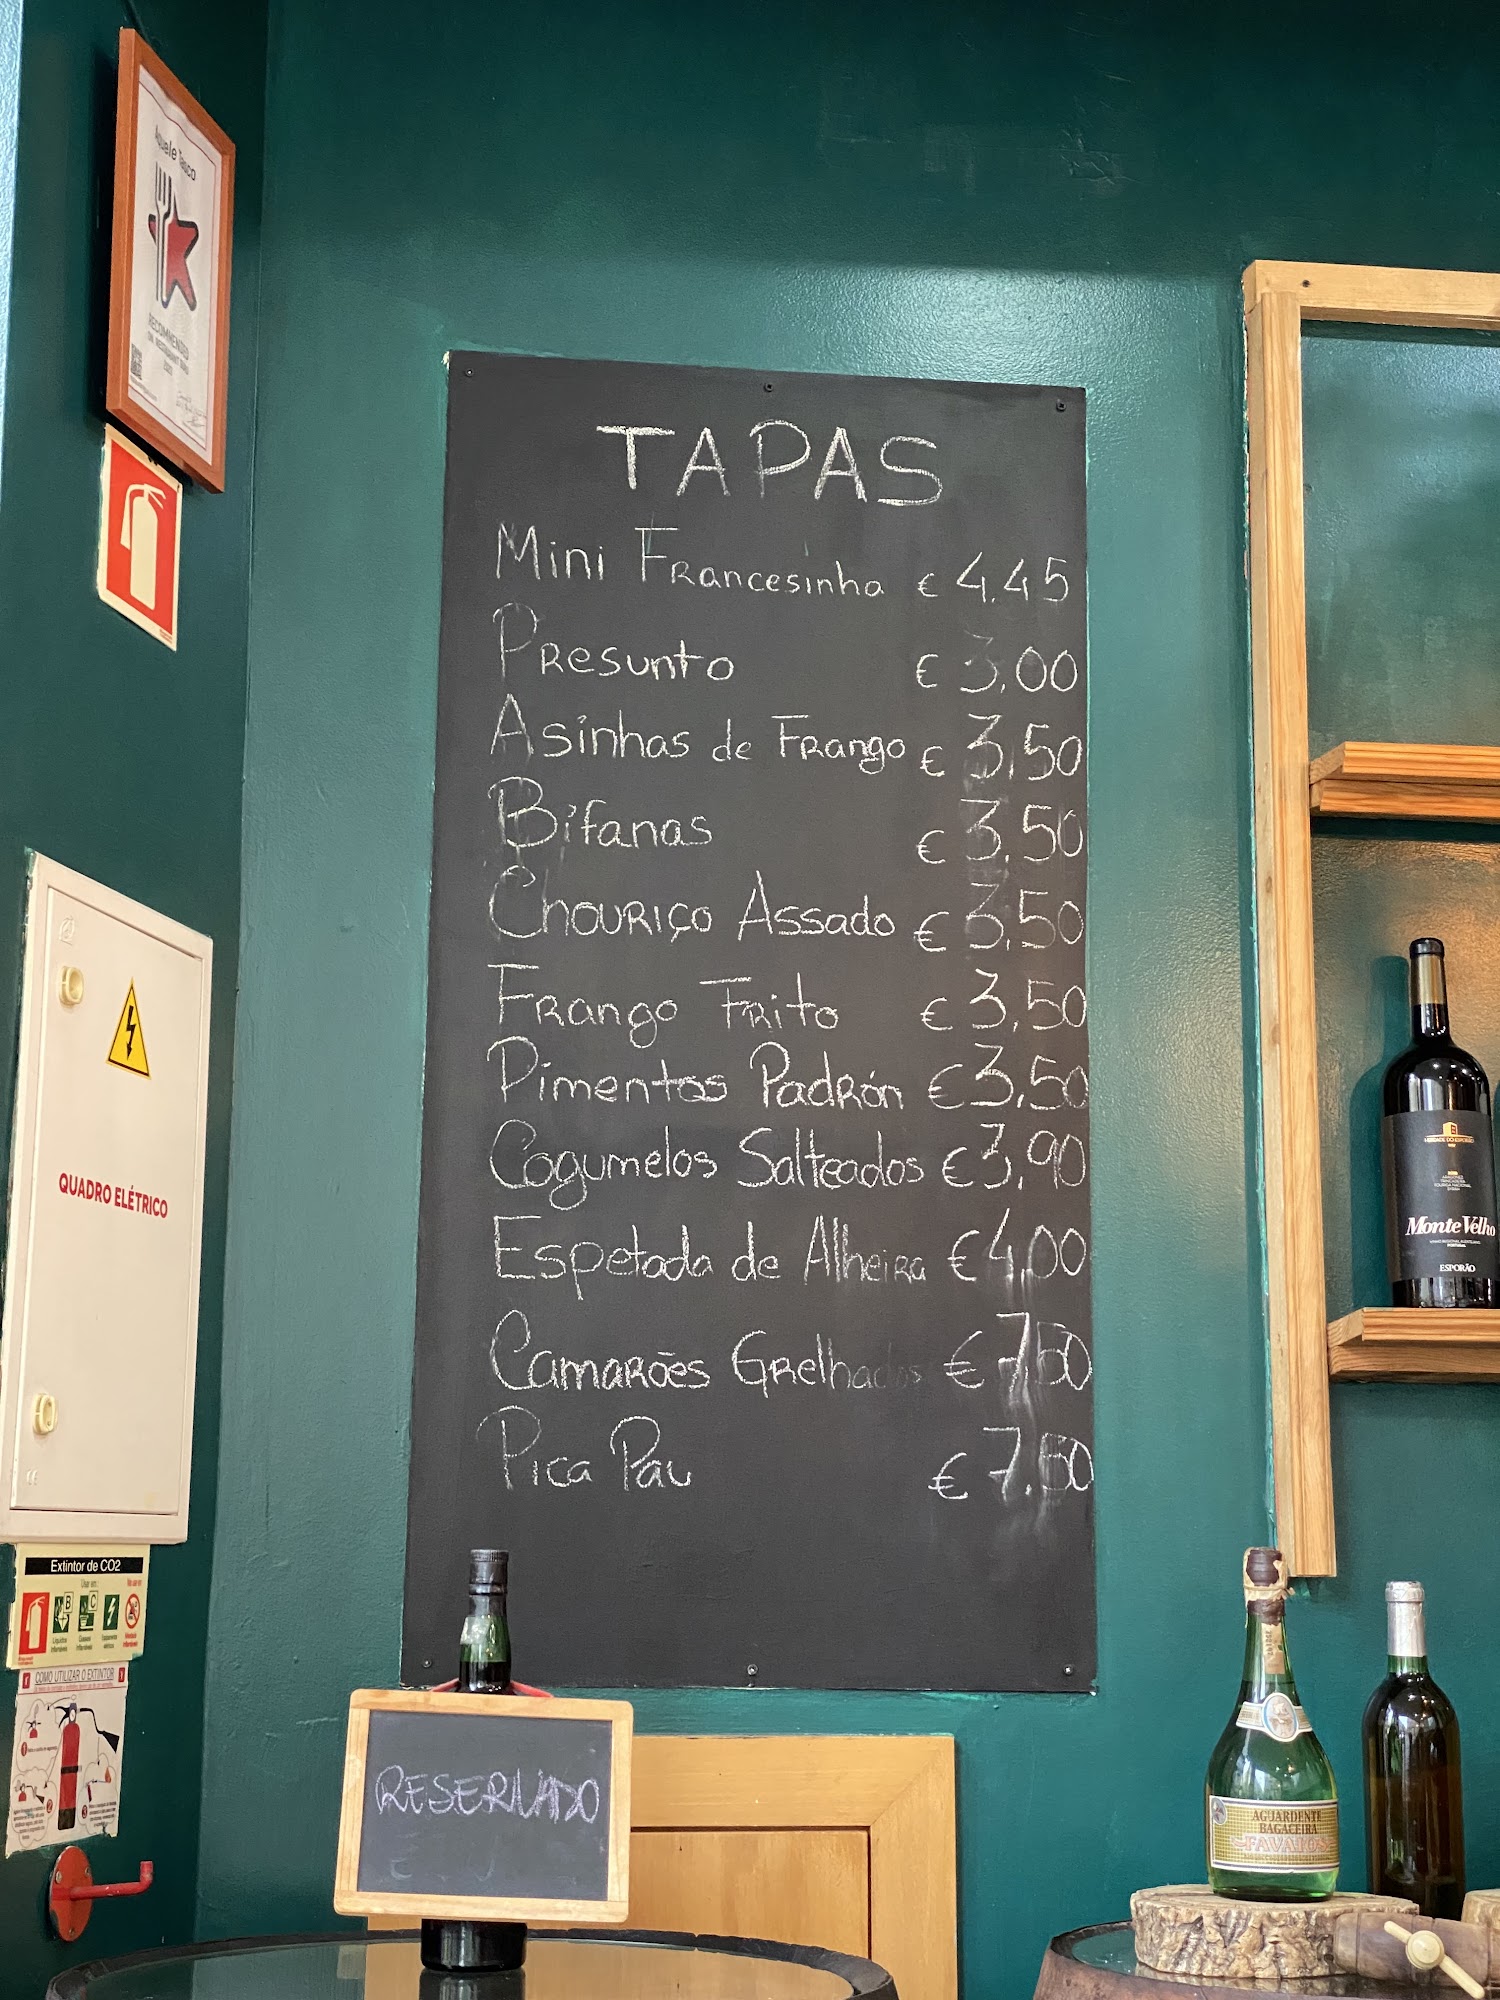 Aquele Tasco
RECOMMENDED
ON RESTAURANT GURU
TAPAS
Mini Francesinha € 4.45
Presunto € 3,00
Asinhas de Frango € 3,50
Bifanas € 3,50
Chouriço Assado € 3,50
Frango Frito € 3,50
Pimentos Padrón € 3,50
Cogumelos Salteados € 3,90
Espetada de Alheira € 4,00
Camarões Grelhados € 7,50
Pica Pau € 7.50
QUADRO ELÉTRICO
Extintor de CO2
Usar em:
B C
COMO UTILIZAR O EXTINTOR
1
2 3
RESERVADO
HERDADE DO ESPORÃO
Monte Velho
PORTUGAL
ESPORÃO
AGUARDENTE
BAGACEIRA
FAVAIOS